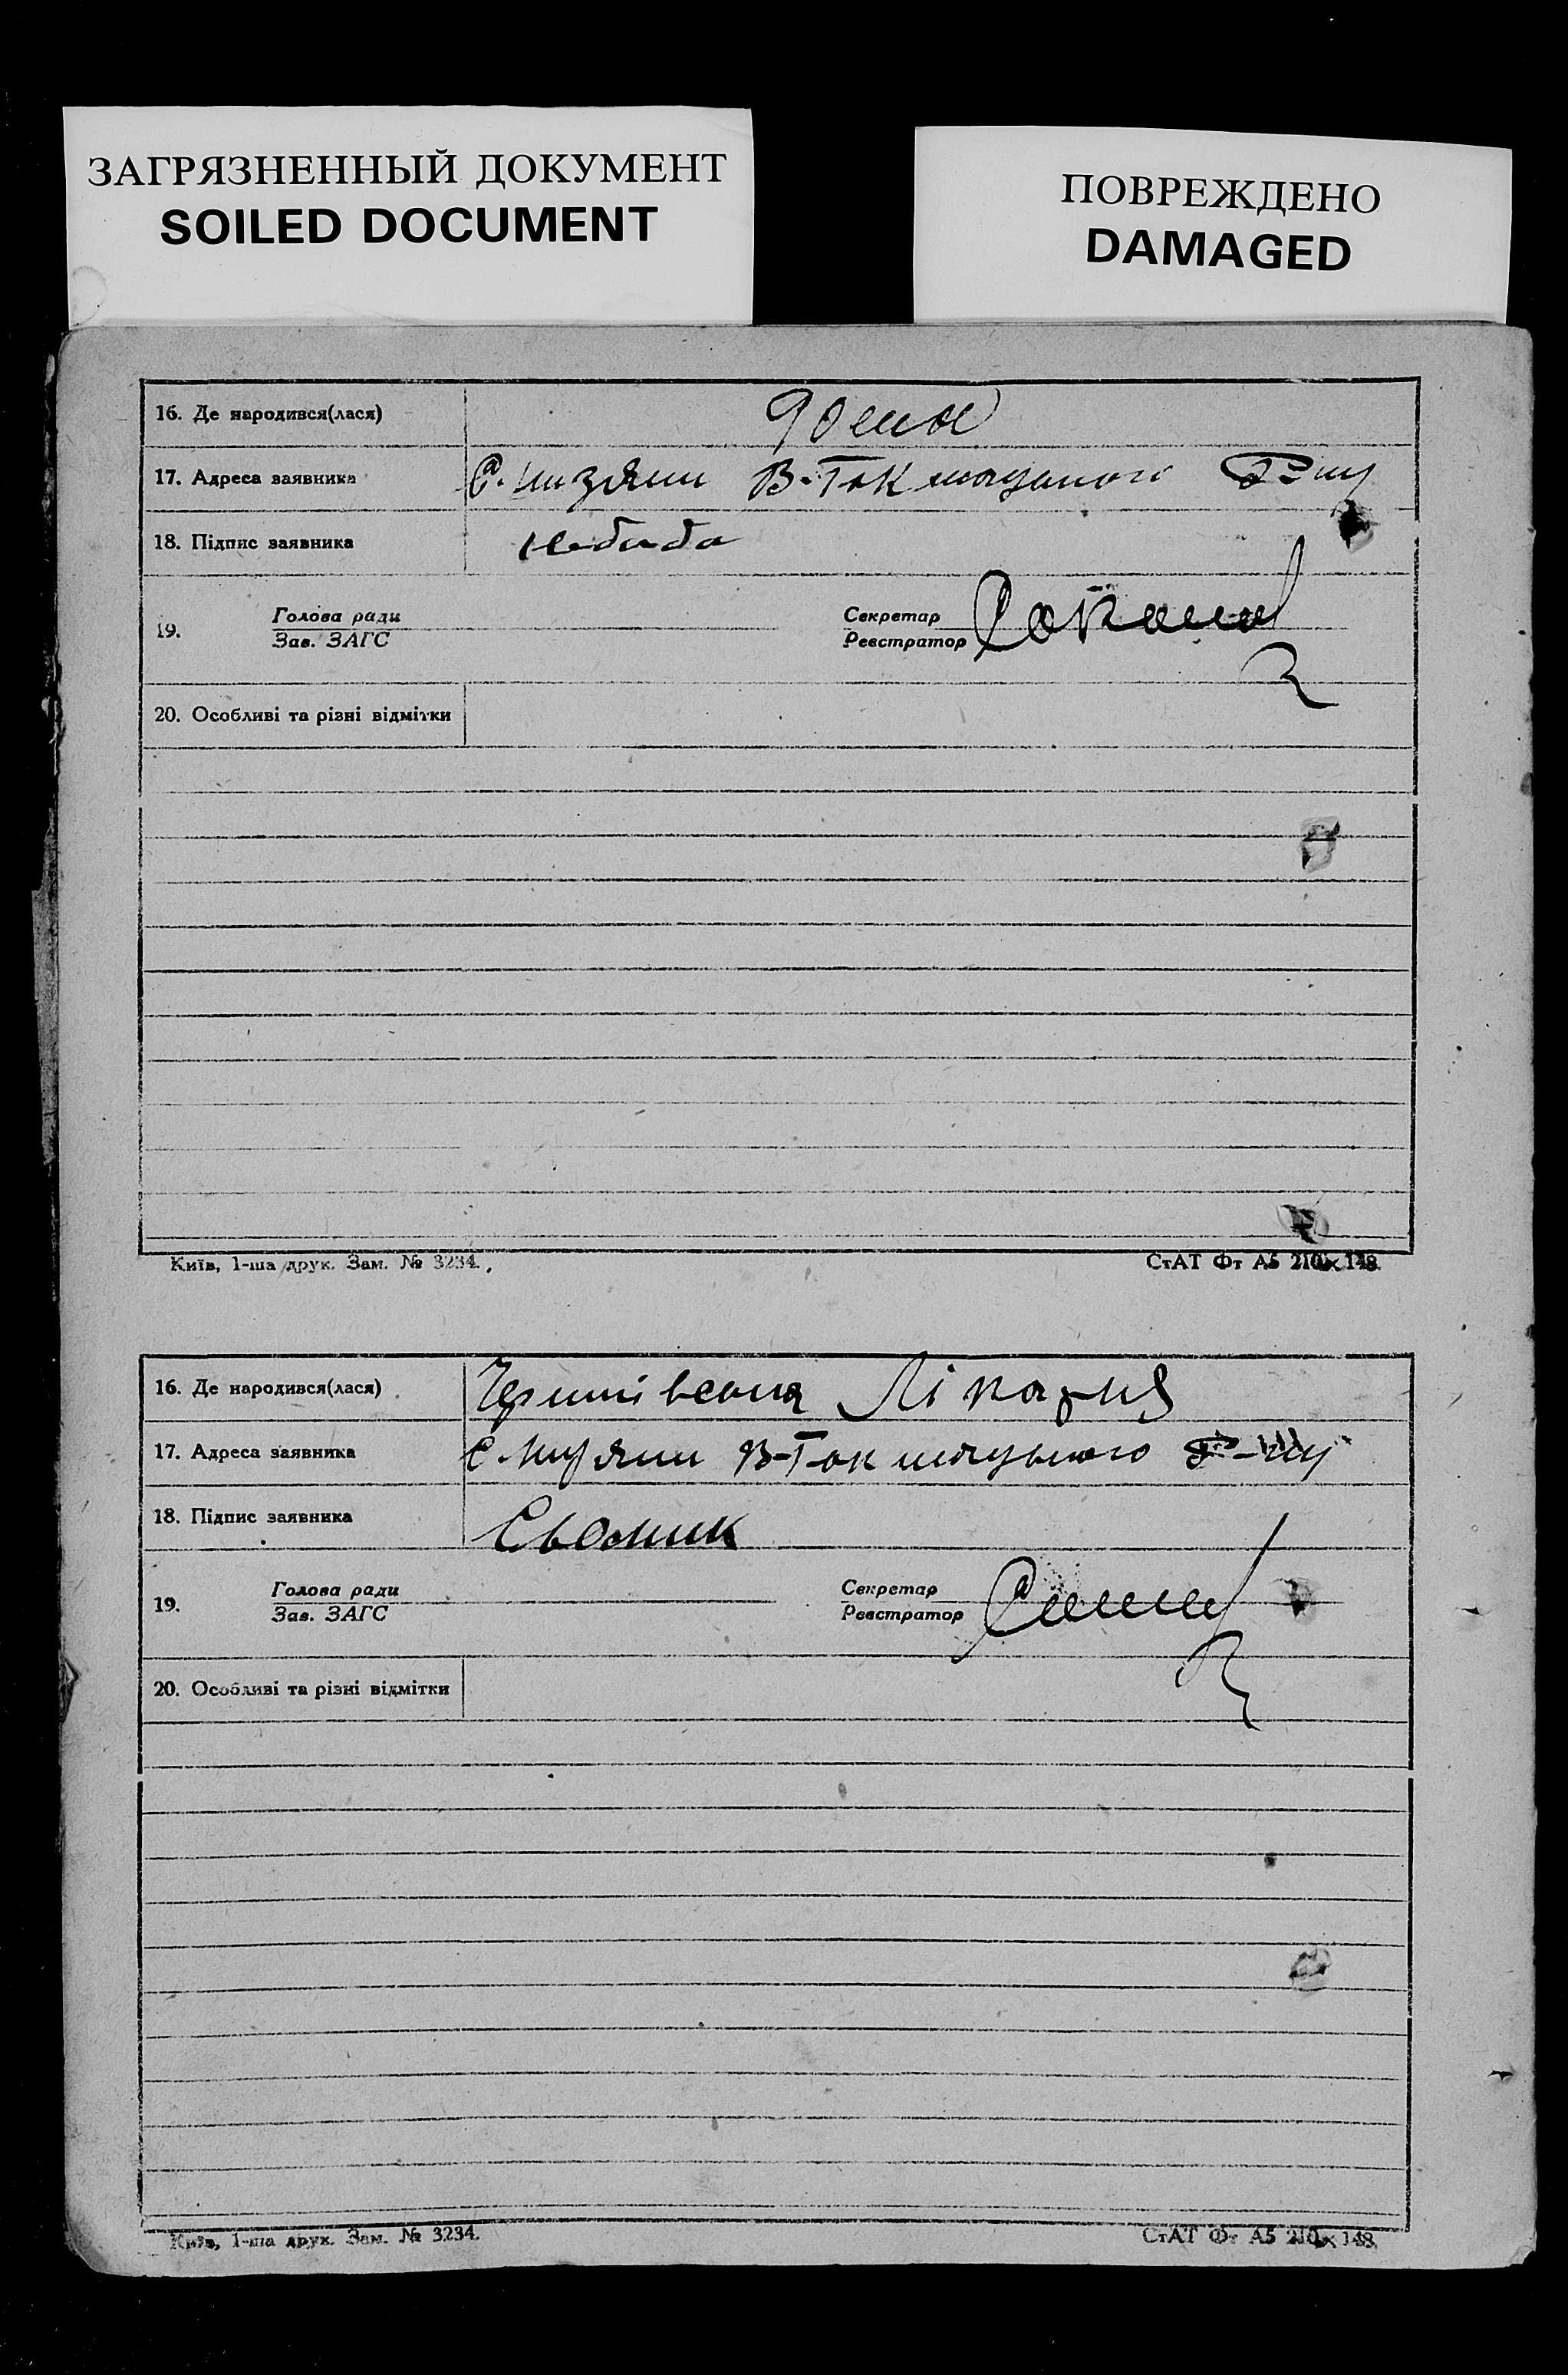 ЗАГРЯЗНЕННЫЙ ДОКУМЕНТ
SOILED DOCUMENT
ПОВРЕЖДЕНО
DAMAGED
16. Де народився(лася)
17. Адреса заявника С. В-Токмацького
18. Підпис заявника
19. Голова ради
Зав. ЗАГС
Секретар
Реєстратор
20. Особливі та різні відмітки
Київ, 1-ша друк. Зам. № 3234.
СтАТ Фт А5 210×148.
16. Де народився(лася) Лікарня
17. Адреса заявника С. В-Токмацького
18. Підпис заявника
19. Голова ради
Зав. ЗАГС
Секретар
Реєстратор
20. Особливі та різні відмітки
Київ, 1-ша друк. Зам. № 3234.
СтАТ Фт А5 210×148.